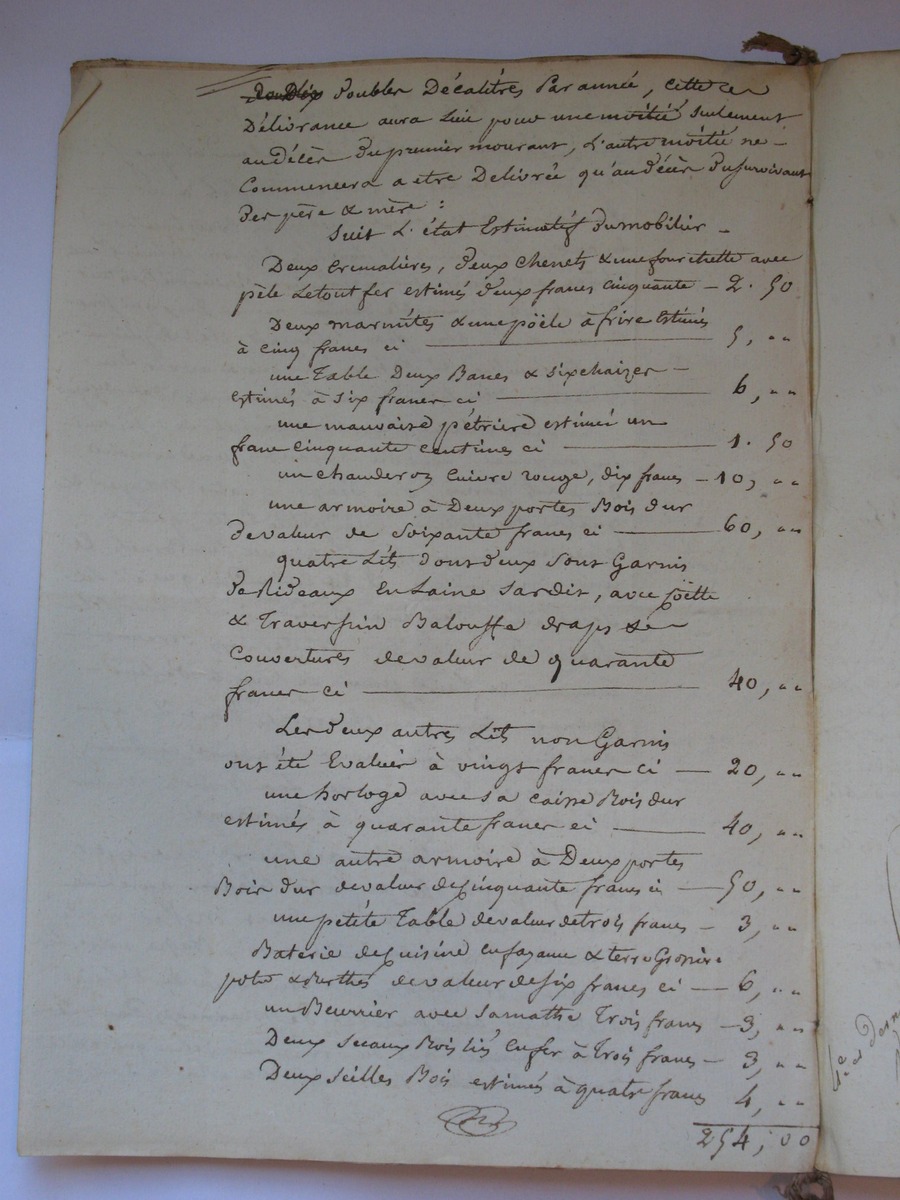 doubles Décalitres Par année, Cette
Délivrance aura Lieu pour une moitié seulement
au décès du premier mourant, L'autre moitié ne -
Commencera a etre Delivrée qu'au décès du survivant
des père & mère :
Suit L'état Estimatif du mobilier -
Deux Cremalières, deux chenets & une fourchette avec
pèle Le tout fer estimés deux francs Cinquante - 2. 50
Deux marmites & une poële à frire Estimés
à cinq francs ci — 5, "
une Table Deux Bancs & six chaizes -
estimés à six francs ci — 6, "
une mauvaise pétrière estimée un
franc Cinquante Centimes ci — 1. 50
un chauderon Cuivre rouge, dix francs - 10, "
une armoire à Deux portes Bois dur
de valeur de Soixante francs ci — 60, "
quatre Lits dont deux Sont Garnis
de Rideaux En Laine Sardis, avec Coëtte
& Traversin Balouffe draps &
Couvertures de valeur de quarante
francs ci — 40, "
Les deux autres Lits non Garnis
ont été Evalués à vingt francs ci — 20, "
une horloge avec sa caisse Bois dur
estimés à quarante francs ci — 40, "
une autre armoire à Deux portes
Bois dur de valeur de Cinquante francs ci — 50, "
une petite Table de valeur de trois francs - 3, "
Baterie de Cuisine en fayance & terre Grossière
pots & de valeur de six francs ci — 6, "
un Beurrier avec Trois francs - 3, "
Deux Seceaux Bois liés en fer à Trois francs - 3, "
Deux Seilles Bois estimés à quatre francs 4, "
254, 00